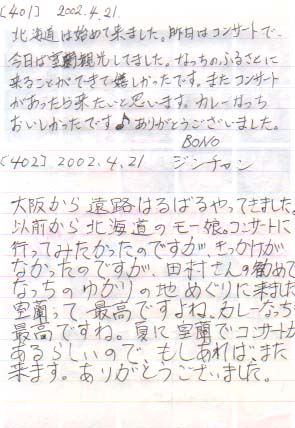 [401] 2002.4.21.
北海道は始めて来ました。昨日はコンサートで、
今日は室蘭観光してました。なっちのふるさとに
来ることができて嬉しかったです。またコンサート
があったら来たいと思います。カレーなっち
おいしかったです♪ ありがとうございました。
BONO
[402] 2002.4.21 ジンチャン
大阪から遠路はるばるやってきました。
以前から北海道のモー娘。コンサートに
行ってみたかったのですが、きっかけが
なかったのですが、田村さんの勧めで
なっちのゆかりの地めぐりに来ました
室蘭って最高ですよね。カレーなっち
最高ですね。夏に室蘭でコンサートが
あるらしいので、もしあれば、また
来ます。ありがとうございました。